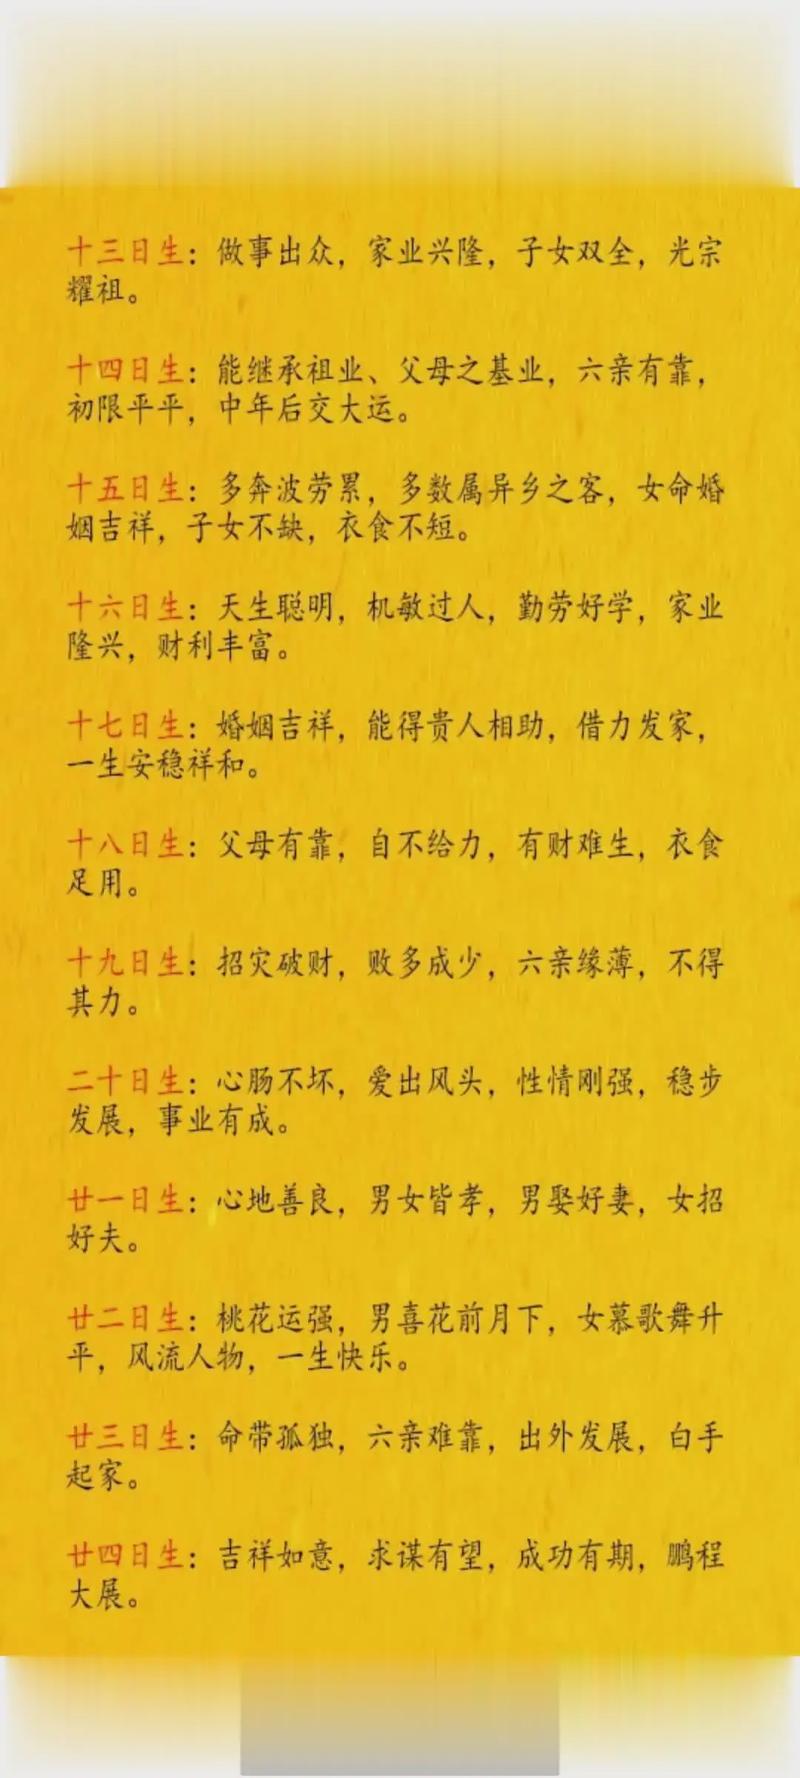 十三日生：做事出众，家业兴隆，子女双全，光宗
耀祖。
十四日生：能继承祖业、父母之基业，六亲有靠，
初限平平，中年后交大运。
十五日生：多奔波劳累，多数属异乡之客，女命婚
姻吉祥，子女不缺，衣食不短。
十六日生：天生聪明，机敏过人，勤劳好学，家业
隆兴，财利丰富。
十七日生：婚姻吉祥，能得贵人相助，借力发家，
一生安稳祥和。
十八日生：父母有靠，自不给力，有财难生，衣食
足用。
十九日生：招灾破财，败多成少，六亲缘薄，不得
其力。
二十日生：心肠不坏，爱出风头，性情刚强，稳步
发展，事业有成。
廿一日生：心地善良，男女皆孝，男娶好妻，女招
好夫。
廿二日生：桃花运强，男喜花前月下，女慕歌舞升
平，风流人物，一生快乐。
廿三日生：命带孤独，六亲难靠，出外发展，白手
起家。
廿四日生：吉祥如意，求谋有望，成功有期，鹏程
大展。